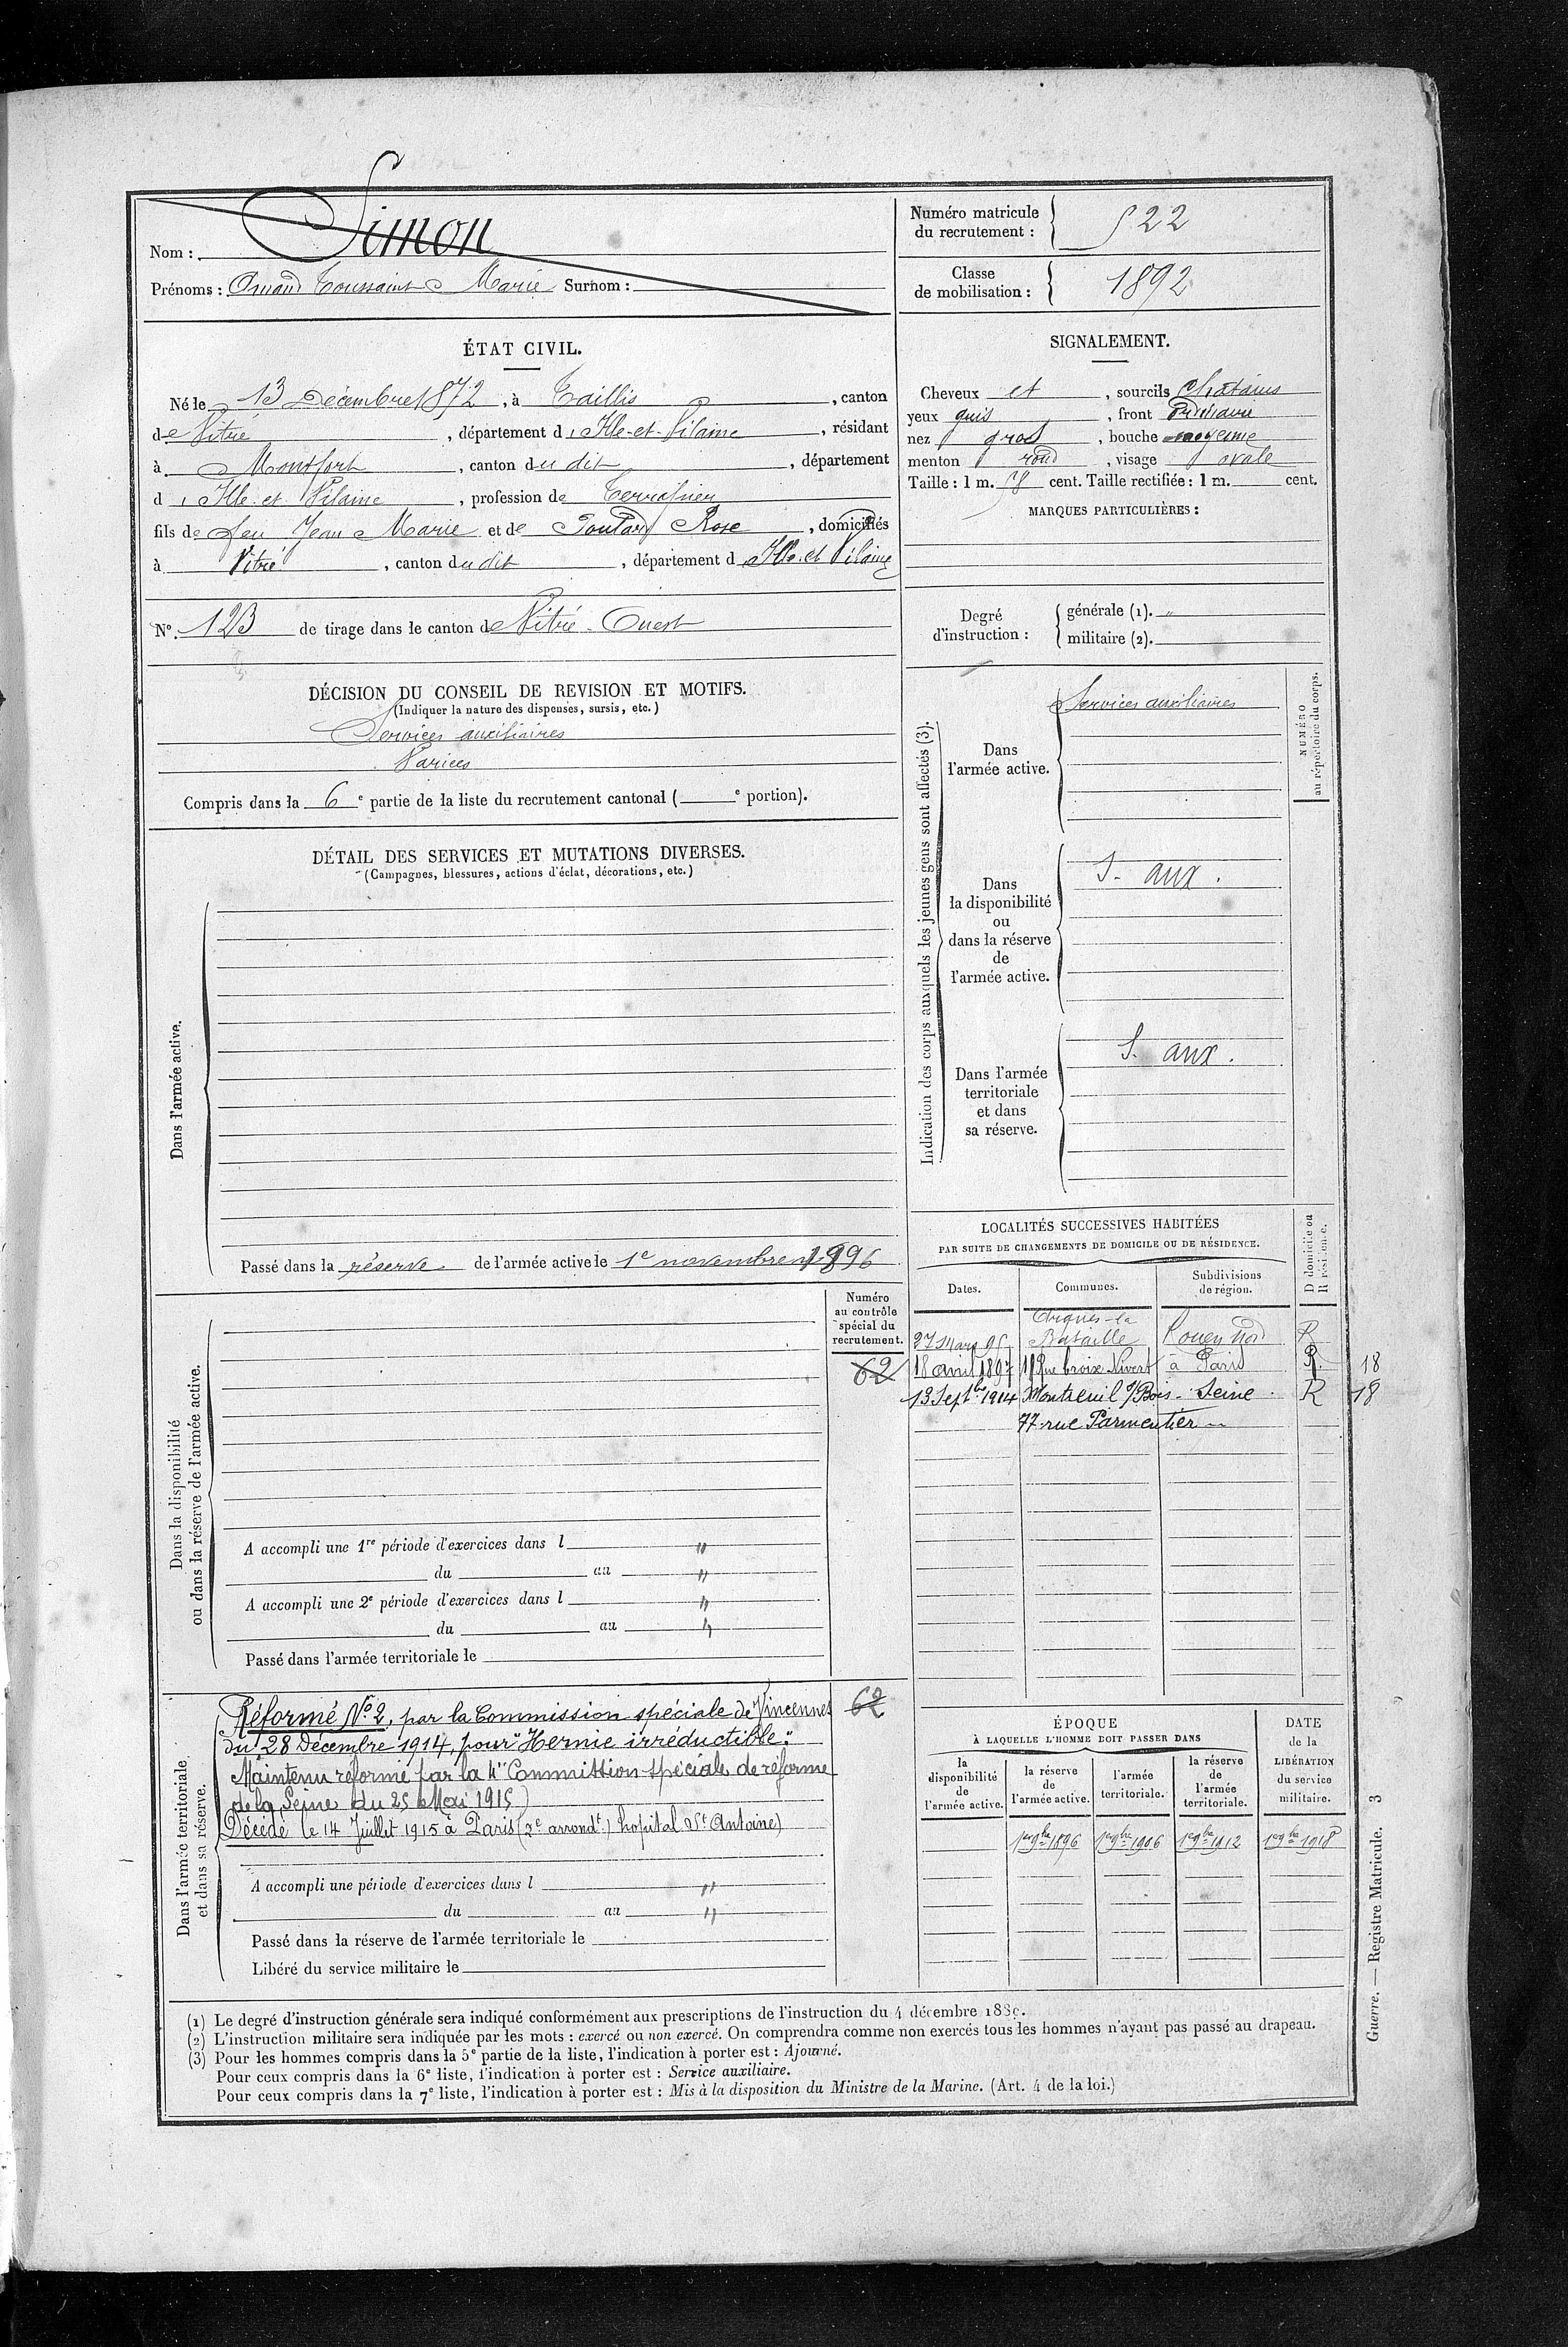 Nom : Simon
Prénoms : Toussaint Marie Surnom :
Numéro matricule
du recrutement : 522
Classe
de mobilisation : 1892
ÉTAT CIVIL.
Né le 13 Décembre 1872, à Taillis, canton
de Vitré, département d'Ille-et-Vilaine, résidant
à Montfort, canton dudit, département
d'Ille-et-Vilaine, profession de Terrassier
fils de feu Jean Marie et de Rose, domiciliés
à Vitré, canton dudit, département d Ille et Vilaine
N° 123 de tirage dans le canton de Vitré-Ouest
SIGNALEMENT.
Cheveux et, sourcils châtains
yeux gris, front ordinaire
nez gros, bouche moyenne
menton rond, visage ovale
Taille : 1 m. 58 cent. Taille rectifiée : 1 m. cent.
MARQUES PARTICULIÈRES :
Degré
d'instruction :
générale (1). "
militaire (2).
DÉCISION DU CONSEIL DE REVISION ET MOTIFS.
(Indiquer la nature des dispenses, sursis, etc.)
Services auxiliaires
Varices
Compris dans la 6e partie de la liste du recrutement cantonal ( e portion).
DÉTAIL DES SERVICES ET MUTATIONS DIVERSES.
(Campagnes, blessures, actions d'éclat, décorations, etc.)
Dans l'armée active.
Passé dans la réserve de l'armée active le 1e novembre 1896
Indication des corps auxquels les jeunes gens sont affectés (3).
NUMÉRO
au répertoire du corps.
Dans
l'armée active.
Services auxiliaires
Dans
la disponibilité
ou
dans la réserve
de
l'armée active.
S. aux.
Dans l'armée
territoriale
et dans
sa réserve.
S. aux.
Numéro
au contrôle
spécial du
recrutement.
62
Dans la disponibilité
ou dans la réserve de l'armée active.
A accompli une 1re période d'exercices dans l "
du au "
A accompli une 2e période d'exercices dans l "
du au "
Passé dans l'armée territoriale le
LOCALITÉS SUCCESSIVES HABITÉES
PAR SUITE DE CHANGEMENTS DE DOMICILE OU DE RÉSIDENCE.
D domicile ou
R résidence.
Dates. Communes. Subdivisions
de région.
Arques-la
27 Mars 95 Bataille Rouen Nord R
18 avril 1897 Rue Croix Nivert à Paris R. 18
13 Septbre 1914 Montreuil s/Bois - Seine. R 18
77 rue Parmentier
Dans l'armée territoriale
et dans sa réserve.
Réformé N° 2, par la Commission spéciale de Vincennes
du 28 Décembre 1914, pour "Hernie irréductible."
Maintenu réformé par la 4e Commission spéciale de réforme
de la Seine du 25 Mai 1915
Décédé le 14 Juillet 1915 à Paris ( arrondt.) hopital St Antoine)
62
A accompli une période d'exercices dans l "
du au "
Passé dans la réserve de l'armée territoriale le
Libéré du service militaire le
ÉPOQUE
À LAQUELLE L'HOMME DOIT PASSER DANS
la
disponibilité
de
l'armée active.
la réserve
de
l'armée active.
l'armée
territoriale.
la réserve
de
l'armée
territoriale.
DATE
de la
LIBÉRATION
du service
militaire.
1er 9bre 1896 1er 9bre 1906 1er 9bre 1912 1er 9bre 1918
(1) Le degré d'instruction générale sera indiqué conformément aux prescriptions de l'instruction du 4 décembre 1889.
(2) L'instruction militaire sera indiquée par les mots : exercé ou non exercé. On comprendra comme non exercés tous les hommes n'ayant pas passé au drapeau.
(3) Pour les hommes compris dans la 5e partie de la liste, l'indication à porter est : Ajourné.
Pour ceux compris dans la 6e liste, l'indication à porter est : Service auxiliaire.
Pour ceux compris dans la 7e liste, l'indication à porter est : Mis à la disposition du Ministre de la Marine. (Art. 4 de la loi.)
Guerre. — Registre Matricule. 3